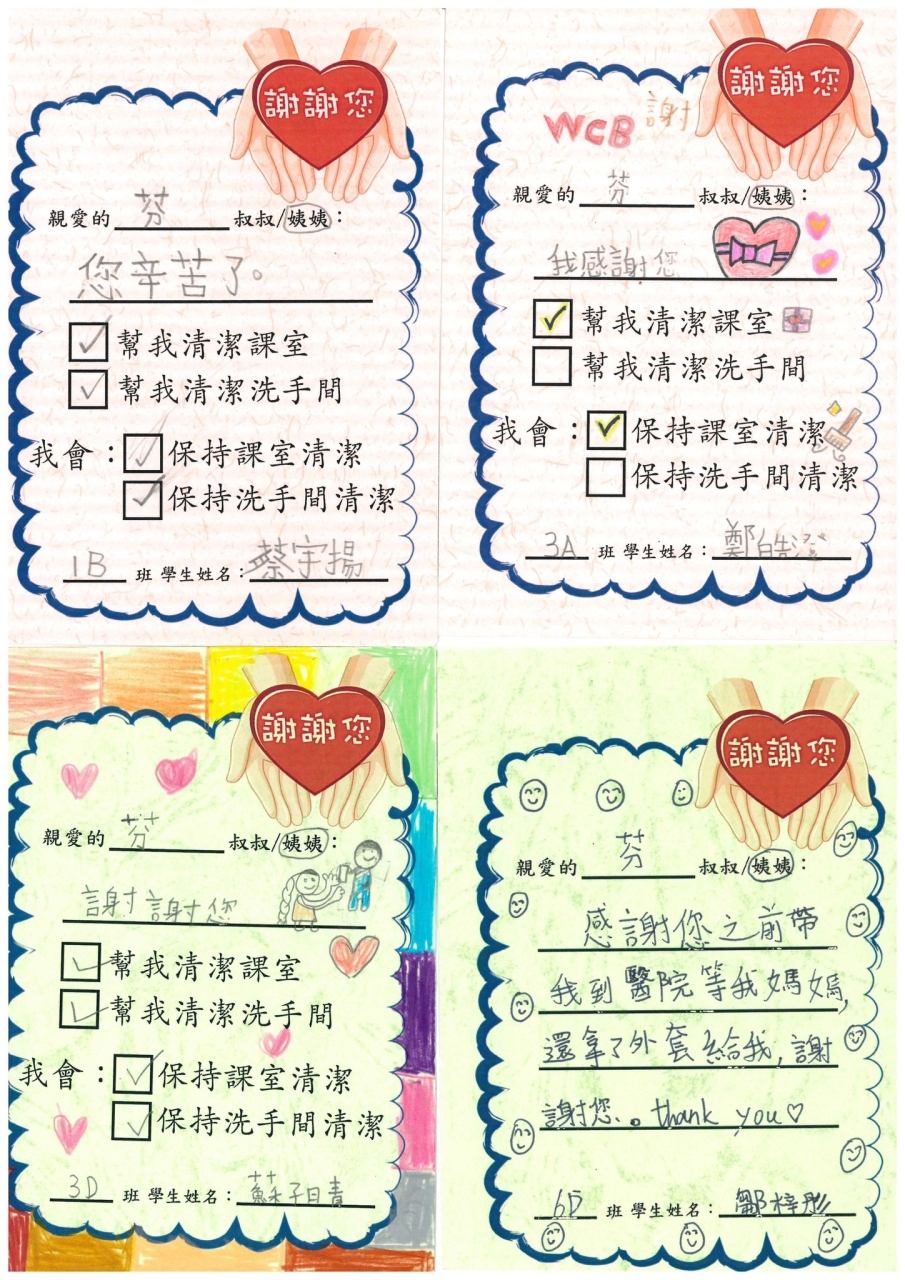 謝謝您
親愛的 芬 叔叔/姨姨：
您辛苦了。
幫我清潔課室
幫我清潔洗手間
我會：保持課室清潔
保持洗手間清潔
1B 班 學生姓名：蔡宇揚
謝謝您
WCB 謝
親愛的 芬 叔叔/姨姨：
我感謝您
幫我清潔課室
幫我清潔洗手間
我會：保持課室清潔
保持洗手間清潔
3A 班 學生姓名：鄭皓澄
謝謝您
親愛的 芬 叔叔/姨姨：
謝謝您
幫我清潔課室
幫我清潔洗手間
我會：保持課室清潔
保持洗手間清潔
3D 班 學生姓名：蘇子晴
謝謝您
親愛的 芬 叔叔/姨姨：
感謝您之前帶
我到醫院等我媽媽,
還拿了外套給我,謝
謝您。thank you♡
6D 班 學生姓名：鄒梓彤